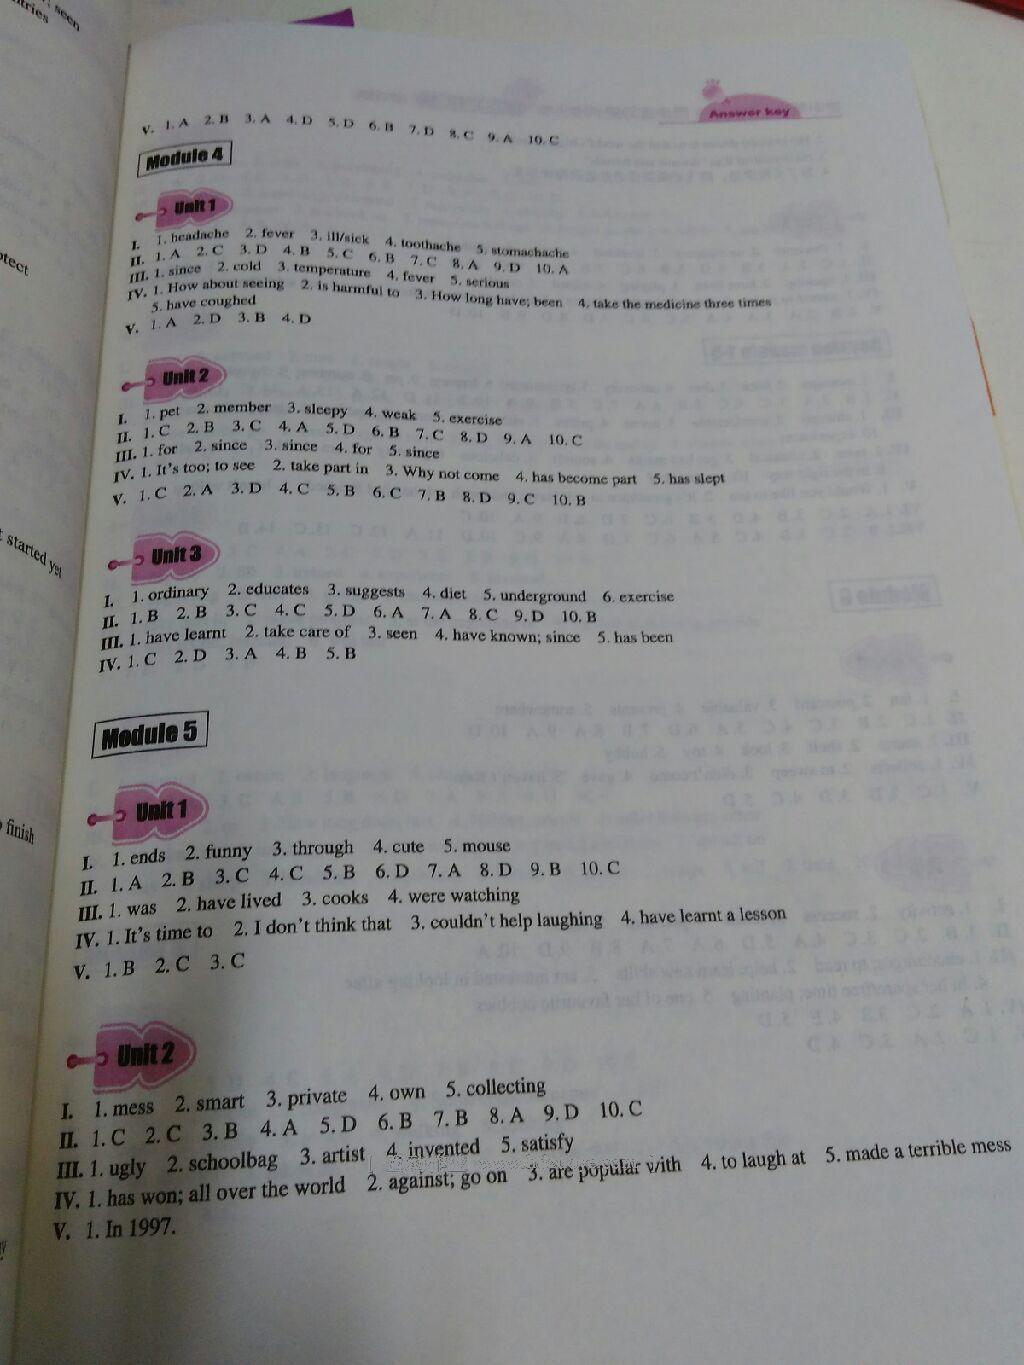 Answer key
V. 1. A 2. B 3. A 4. D 5. D 6. B 7. D 8. C 9. A 10. C
Module 4
Unit 1
I. 1. headache 2. fever 3. ill/sick 4. toothache 5. stomachache
II. 1. A 2. C 3. D 4. B 5. C 6. B 7. C 8. A 9. D 10. A
III. 1. since 2. cold 3. temperature 4. fever 5. serious
IV. 1. How about seeing 2. is harmful to 3. How long have; been 4. take the medicine three times
5. have coughed
V. 1. A 2. D 3. B 4. D
Unit 2
I. 1. pet 2. member 3. sleepy 4. weak 5. exercise
II. 1. C 2. B 3. C 4. A 5. D 6. B 7. C 8. D 9. A 10. C
III. 1. for 2. since 3. since 4. for 5. since
IV. 1. It's too; to see 2. take part in 3. Why not come 4. has become part 5. has slept
V. 1. C 2. A 3. D 4. C 5. B 6. C 7. B 8. D 9. C 10. B
Unit 3
I. 1. ordinary 2. educates 3. suggests 4. diet 5. underground 6. exercise
II. 1. B 2. B 3. C 4. C 5. D 6. A 7. A 8. C 9. D 10. B
III. 1. have learnt 2. take care of 3. seen 4. have known; since 5. has been
IV. 1. C 2. D 3. A 4. B 5. B
Module 5
Unit 1
I. 1. ends 2. funny 3. through 4. cute 5. mouse
II. 1. A 2. B 3. C 4. C 5. B 6. D 7. A 8. D 9. B 10. C
III. 1. was 2. have lived 3. cooks 4. were watching
IV. 1. It's time to 2. I don't think that 3. couldn't help laughing 4. have learnt a lesson
V. 1. B 2. C 3. C
Unit 2
I. 1. mess 2. smart 3. private 4. own 5. collecting
II. 1. C 2. C 3. B 4. A 5. D 6. B 7. B 8. A 9. D 10. C
III. 1. ugly 2. schoolbag 3. artist 4. invented 5. satisfy
IV. 1. has won; all over the world 2. against; go on 3. are popular with 4. to laugh at 5. made a terrible mess
V. 1. In 1997.
seen
started yet
finish